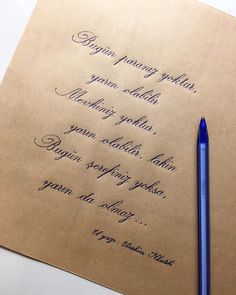 Bugün paranız yoktur,
yarın olabilir.
Mevkiniz yoktur,
yarın olabilir, lakin
Bugün şerefiniz yoksa,
yarın da olmaz...
El yazı: İbrahim